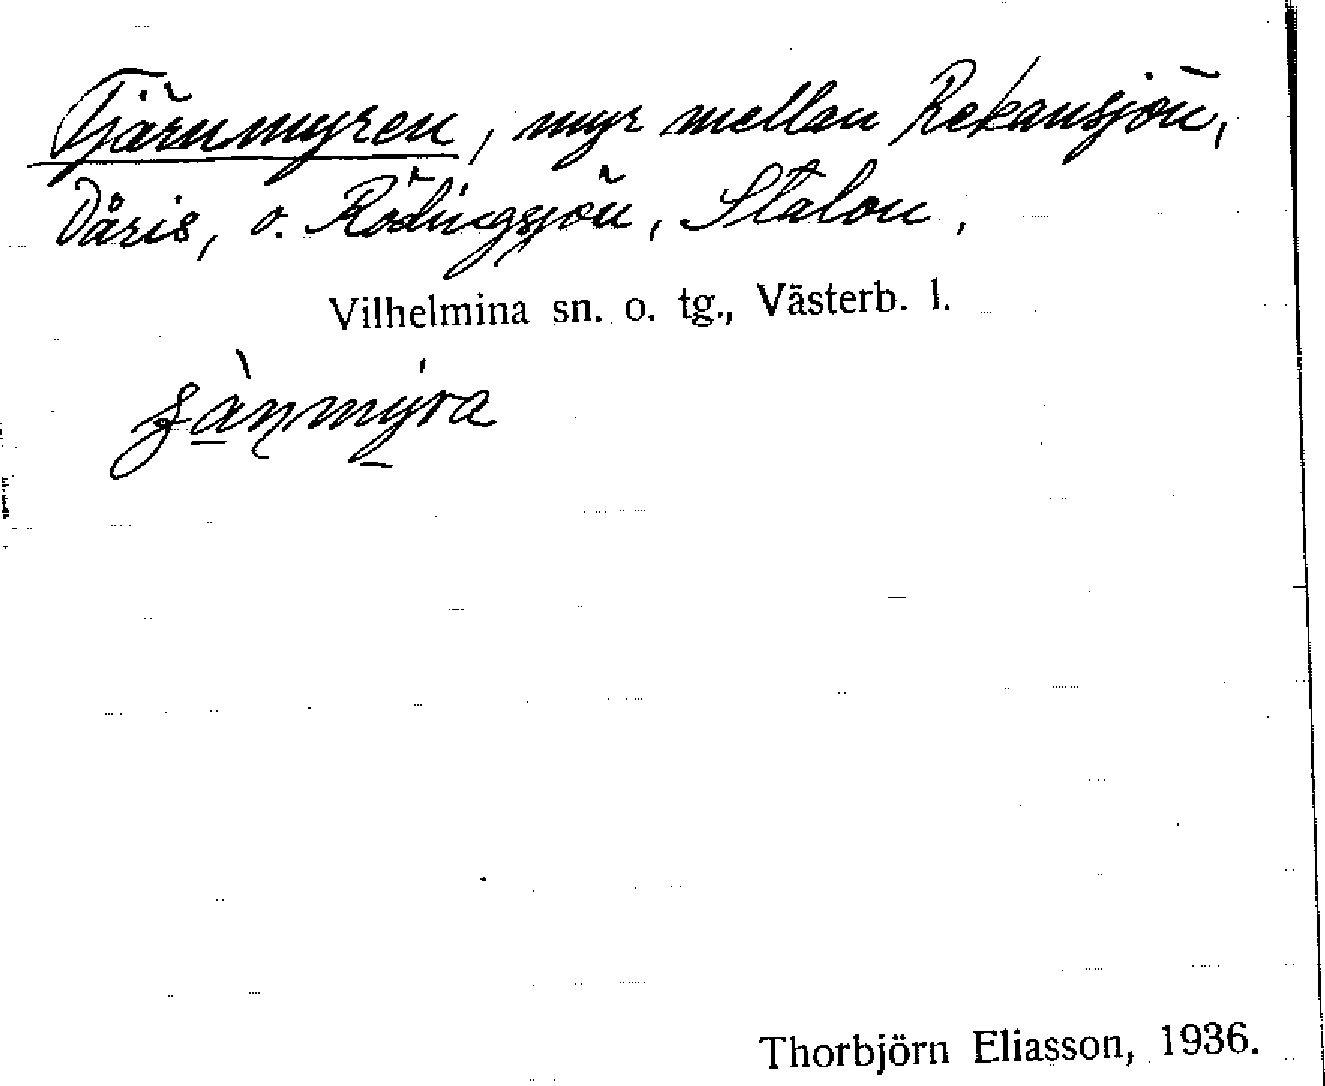 Tjärnmyren, myr mellan Rekansjön,
Dåris, o. Rödingsjön, Stalon.
Vilhelmina sn. o. tg., Västerb. l.
Thorbjörn Eliasson, 1936.